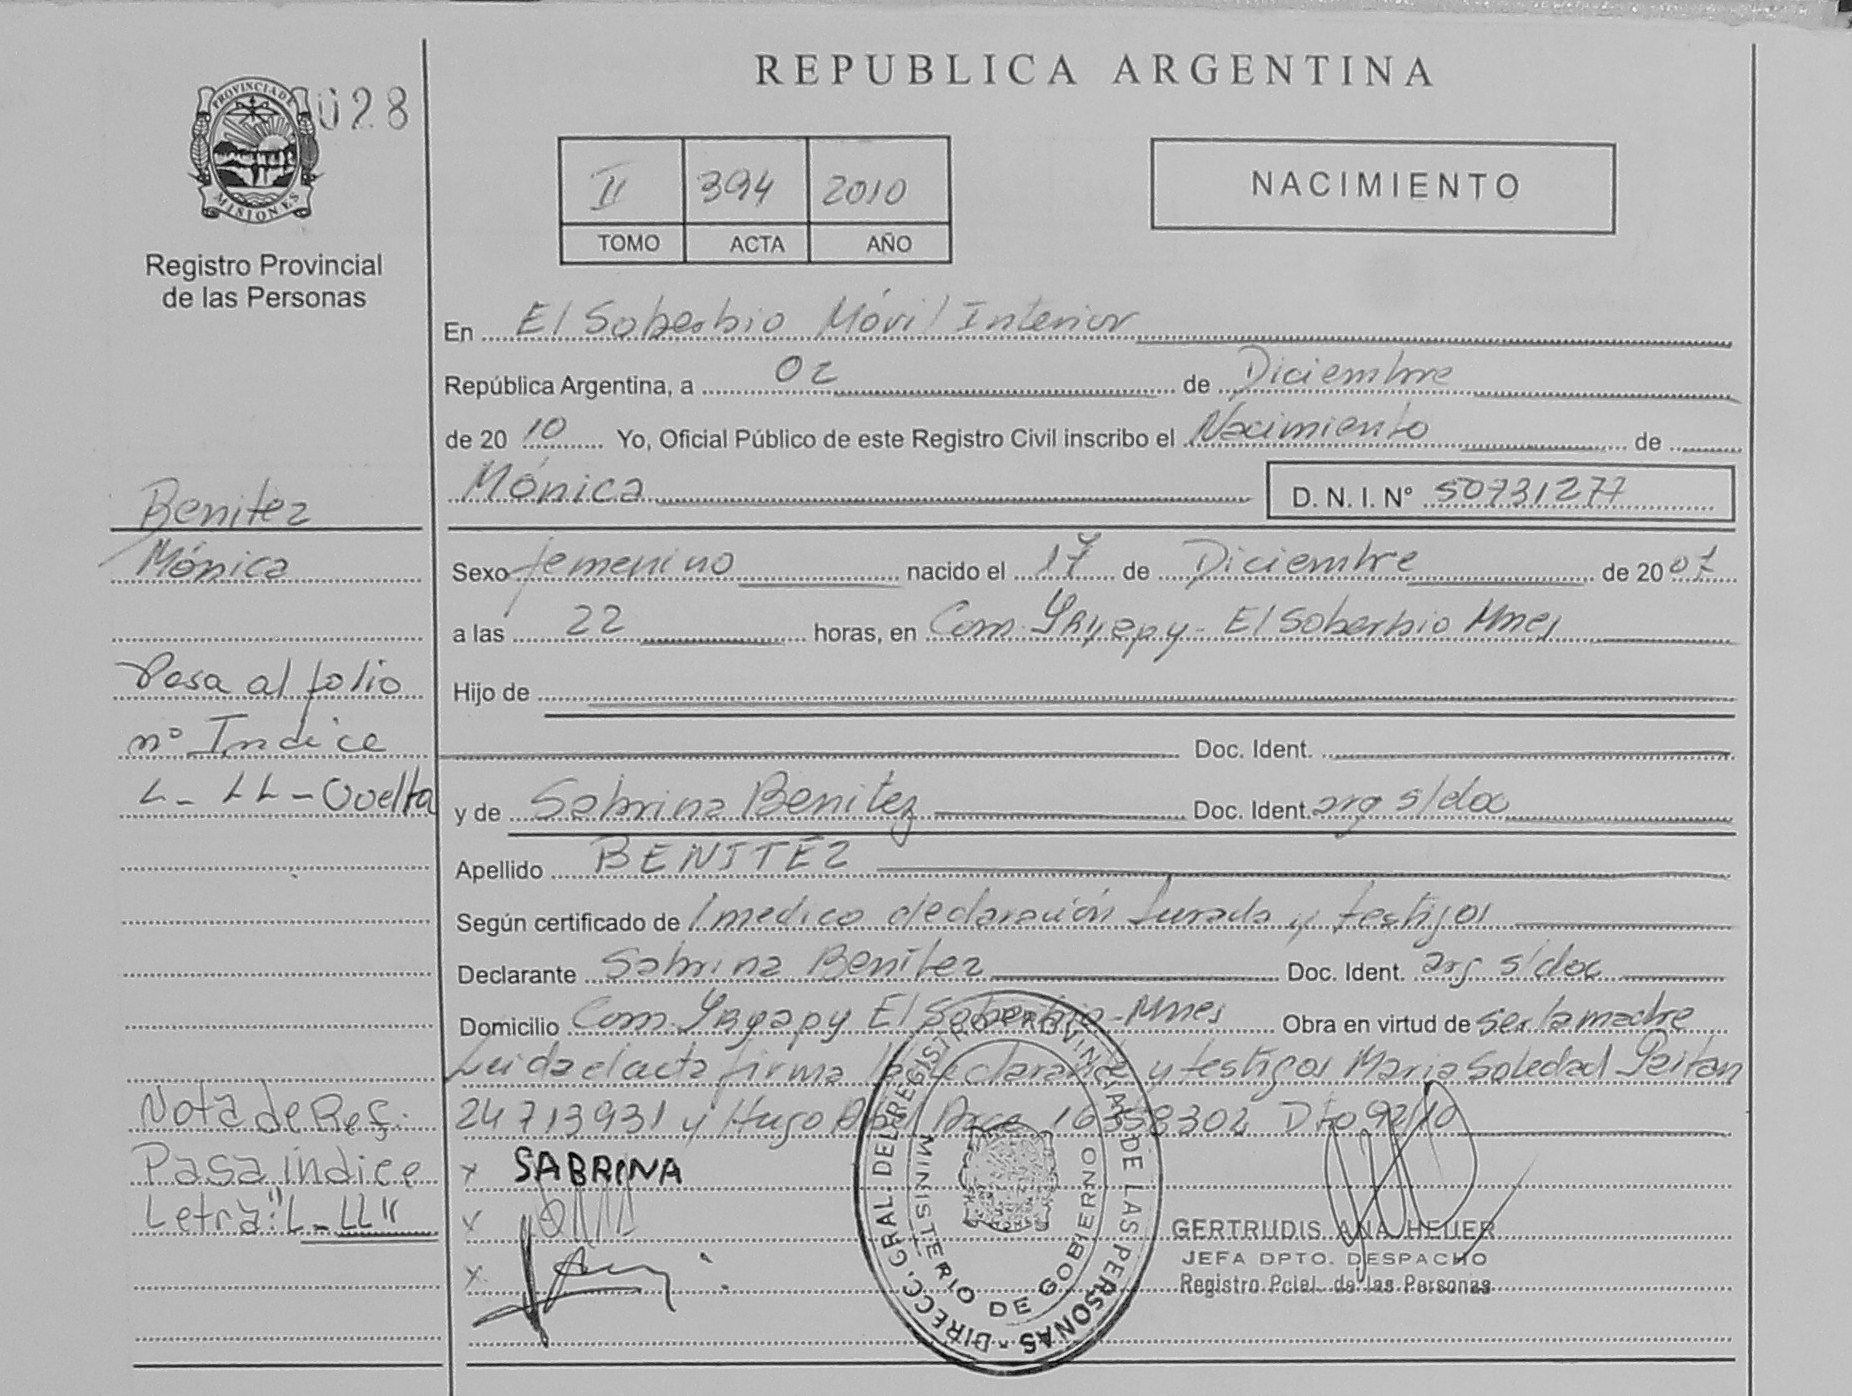 REPUBLICA ARGENTINA
PROVINCIA DE
MISIONES
028
Registro Provincial
de las Personas
II 394 2010
TOMO ACTA AÑO
NACIMIENTO
En El Soberbio Móvil Interior
República Argentina, a 02 de Diciembre
de 20 10 Yo, Oficial Público de este Registro Civil inscribo el Nacimiento de
Mónica D. N. I. Nº 50731277
Benitez
Mónica
Sexo femenino nacido el 17 de Diciembre de 20 07
a las 22 horas, en Com. El Soberbio Mnes
Pasa al folio
nº Indice
L - LL - Vuelta
Hijo de
Doc. Ident.
y de Sabrina Benitez Doc. Ident. arg s/doc
Apellido BENITEZ
Según certificado de 1 medico declaración Jurada y testigos
Declarante Sabrina Benitez Doc. Ident. arg s/doc
Domicilio Com. El Soberbio - Mnes Obra en virtud de ser la madre
Leida el acta firma la declarante y testigos Maria Soledad
24713931 y Hugo Abel Arce 16358302 Dto 92/10
Nota de Ref:
Pasa indice
Letra: "L - LL"
x SABRINA
x
x
DIRECC. GRAL. DEL REGISTRO PROVINCIAL DE LAS PERSONAS
MINISTERIO DE GOBIERNO
GERTRUDIS ANA HEUER
JEFA DPTO. DESPACHO
Registro Pcial. de las Personas